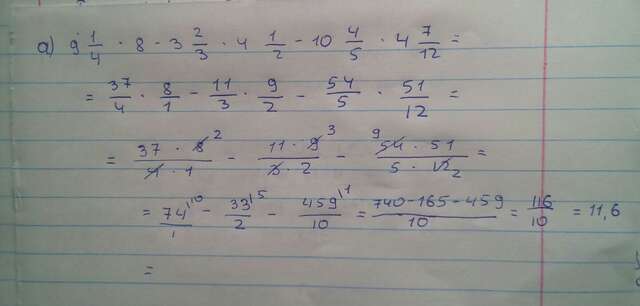 a) 9 1/4 · 8 - 3 2/3 · 4 1/2 - 10 4/5 · 4 7/12 =
= 37/4 · 8/1 - 11/3 · 9/2 - 54/5 · 51/12 =
= 37 · 8 2/4 · 1 - 11 · 9 3/3 · 2 - 9 54 · 51/5 · 12 2 =
= 74 10/1 - 33 5/2 - 459 1/10 = 740-165-459/10 = 116/10 = 11,6
=